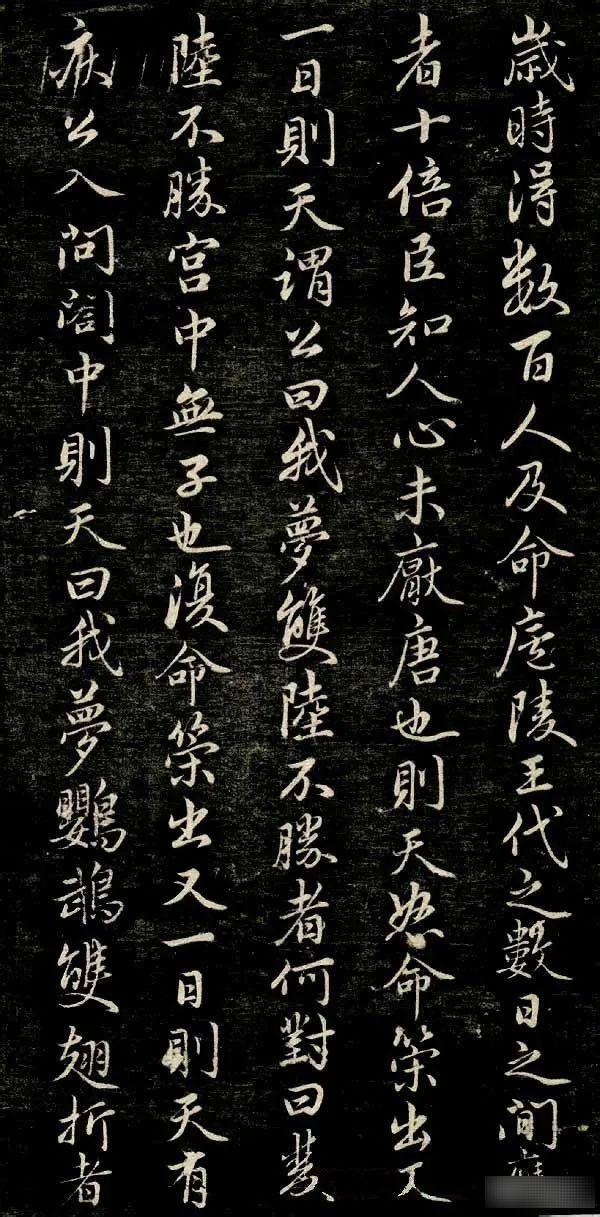 歲時得数百人及命廬陵王代之數日之間
者十倍臣知人心未厭唐也則天怒命策出又
一日則天謂公曰我夢雙陸不勝者何對曰雙
陸不勝宮中無子也復命策出又一日則天有
疾公入問閤中則天曰我夢鸚鵡雙翅折者